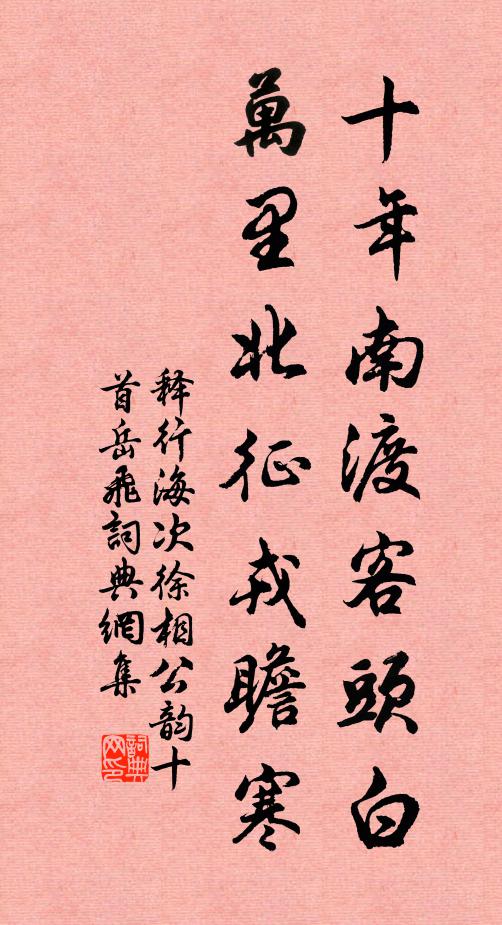 十年南渡客頭白
萬里北征戎瞻寒
释行海次徐相公韵十
首岳飛詞典網集
詞典
网印